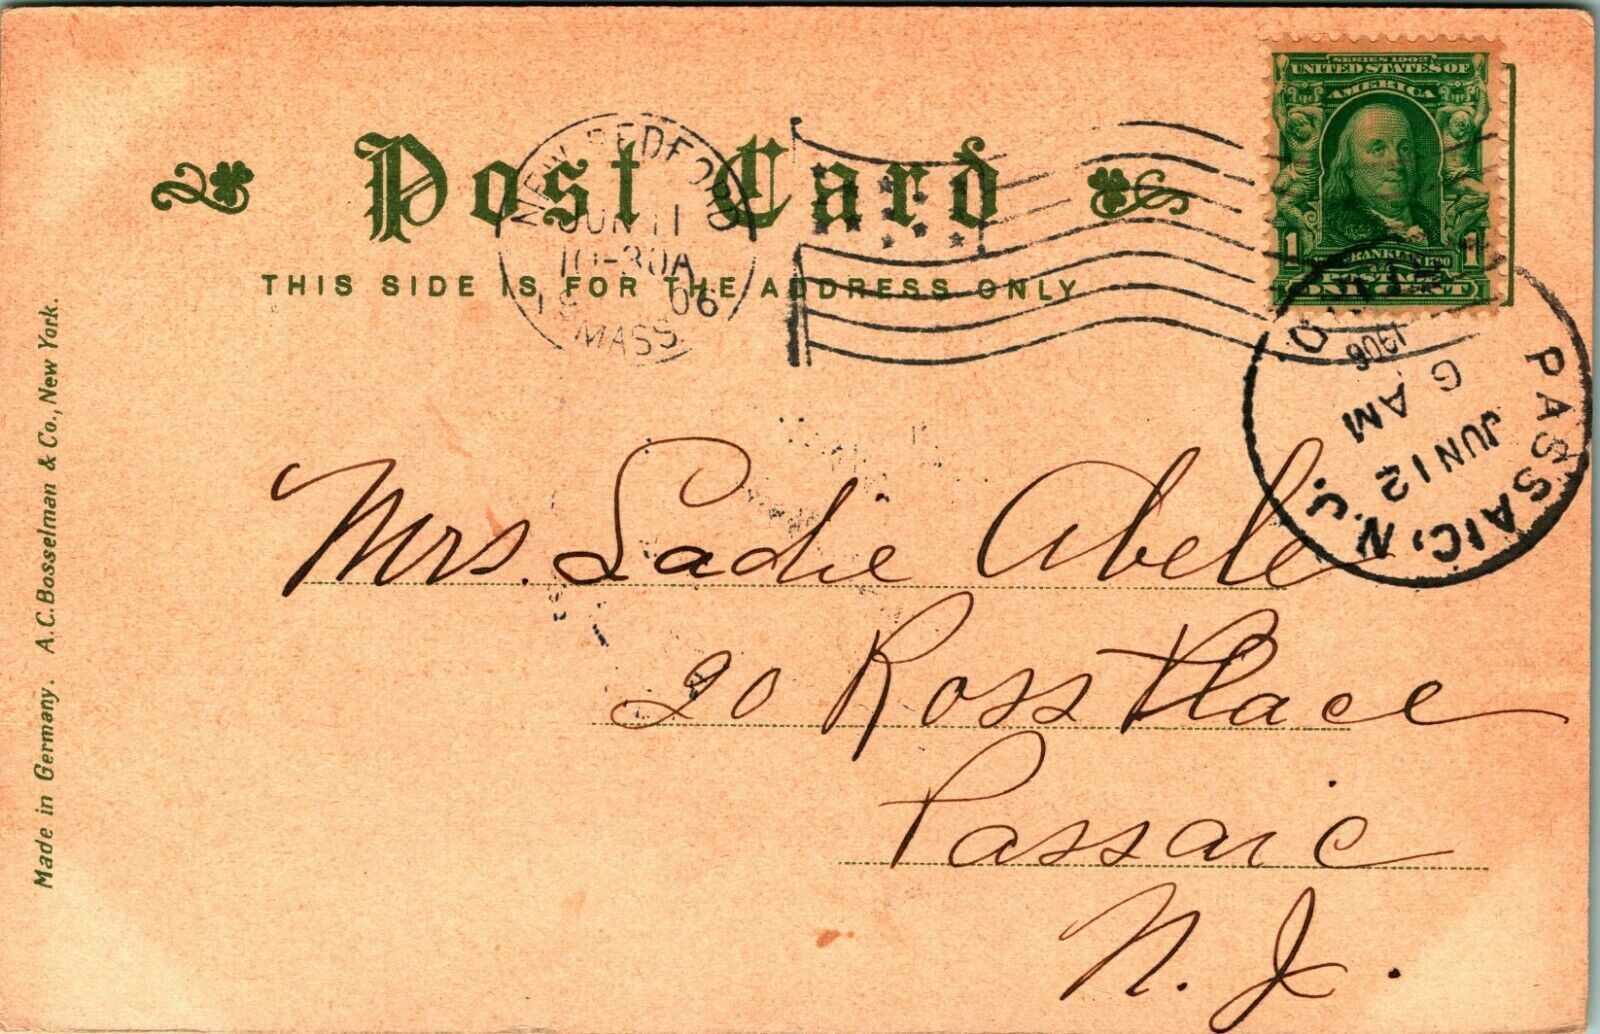 SERIES 1902
UNITED STATES OF
AMERICA
1 1
FRANKLIN
POSTAGE
ONE CENT
Post Card
THIS SIDE IS FOR THE ADDRESS ONLY
NEW BEDFORD
JUN 11
10-30A
06
MASS.
PASSAIC, N.J.
JUN 12
6 AM
1906
REC'D
Mrs. Sadie Abele
20 Ross Place
Passaic
N. J.
Made in Germany. A.C. Bosselman & Co., New York.